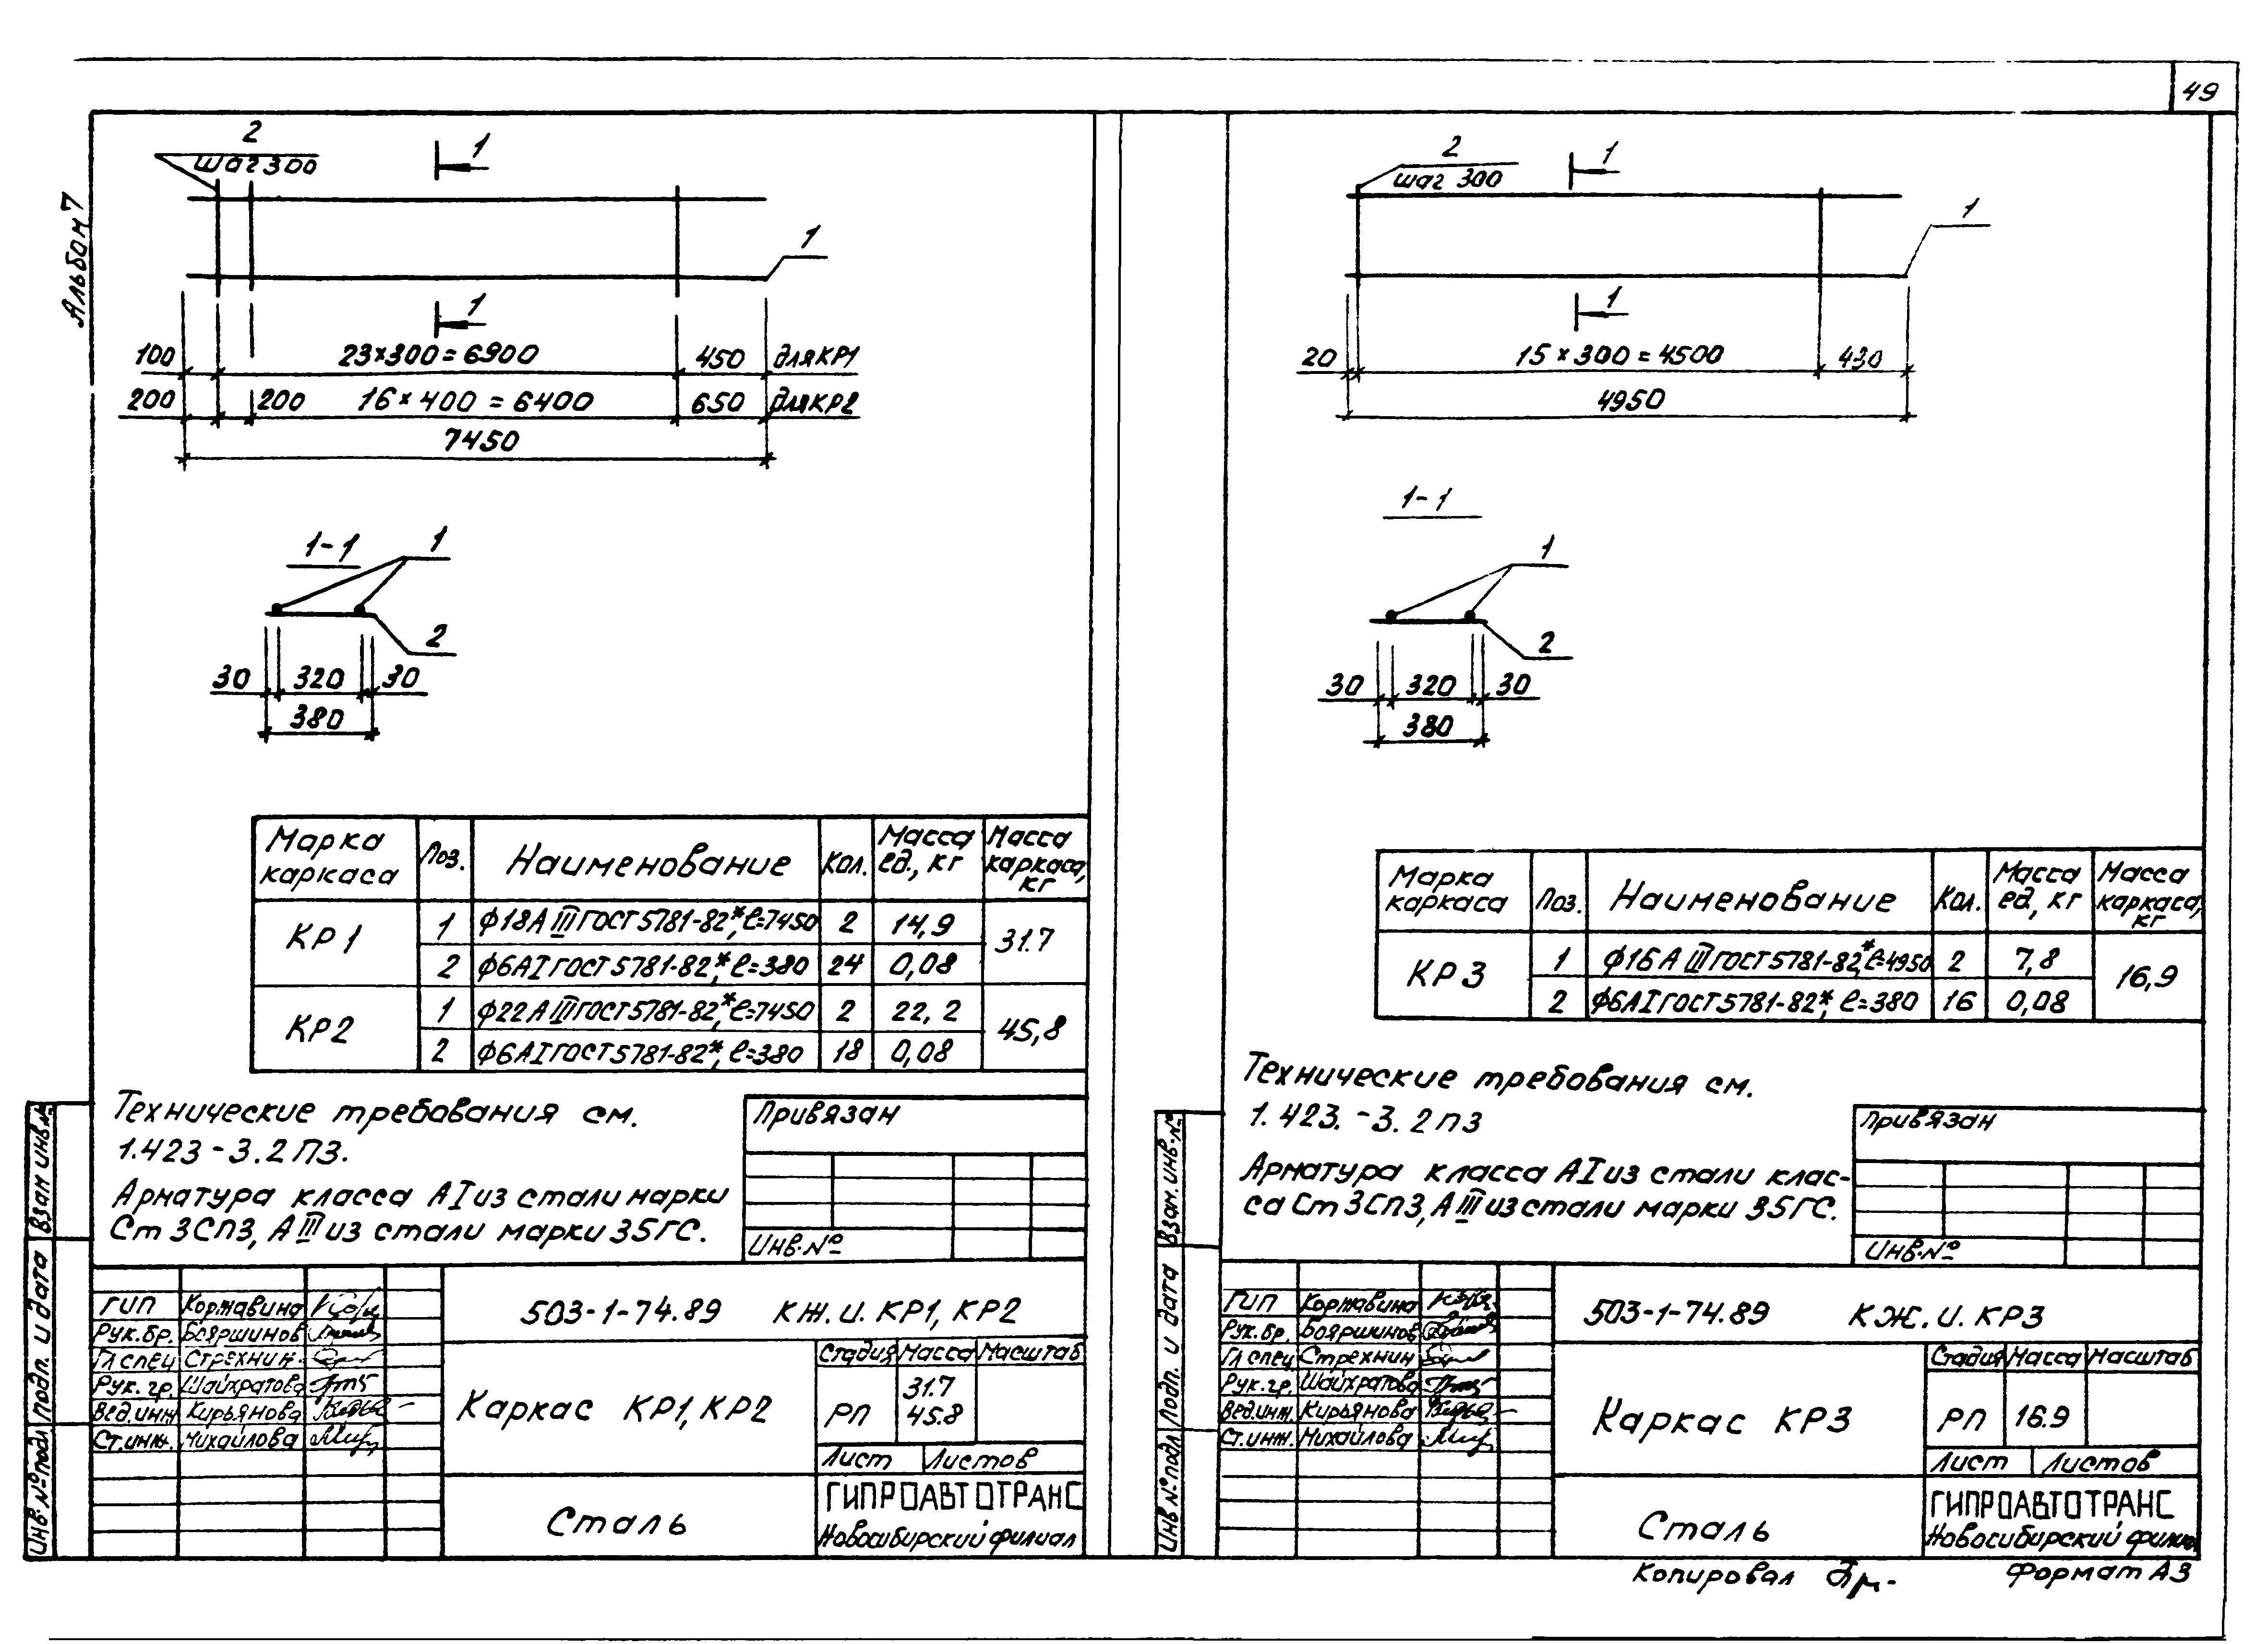 49
Альбом 7
2
шаг 300
1
1
1
100 23×300=6900 450 для КР1
200 200 16×400=6400 650 для КР2
7450
1-1
1
2
30 320 30
380
Марка каркаса Поз. Наименование Кол. Масса ед., кг Масса каркаса, кг
КР1 1 ϕ18АIII ГОСТ 5781-82*, ℓ=7450 2 14,9 31.7
2 ϕ6АI ГОСТ 5781-82*, ℓ=380 24 0,08
КР2 1 ϕ22АIII ГОСТ 5781-82*, ℓ=7450 2 22,2 45,8
2 ϕ6АI ГОСТ 5781-82*, ℓ=380 18 0,08
Технические требования см.
1.423-3.2 ПЗ.
Арматура класса АI из стали марки
Ст 3СП3, АIII из стали марки 35ГС.
Привязан
Инв.№
Взам инв.№
Подп. и дата
Инв.№ подл
ГИП Коржавина
Рук.бр. Бояршинов
Гл спец Стрехнин
Рук.гр. Шайхратова
Вед.инж Кирьянова
Ст.инж. Михайлова
503-1-74.89 КЖ.И. КР1, КР2
Каркас КР1, КР2
Стадия Масса Масштаб
РП 31.7
45.8
Лист Листов
Сталь
ГИПРОАВТОТРАНС
Новосибирский филиал
2
шаг 300
1
1
1
20 15×300=4500 430
4950
1-1
1
2
30 320 30
380
Марка каркаса Поз. Наименование Кол. Масса ед, кг Масса каркаса, кг
КР3 1 ϕ16АIII ГОСТ 5781-82*, ℓ=4950 2 7,8 16,9
2 ϕ6АI ГОСТ 5781-82*, ℓ=380 16 0,08
Технические требования см.
1.423.-3.2 ПЗ
Арматура класса АI из стали клас-
са Ст 3СП3, АIII из стали марки 35ГС.
Привязан
Инв.№
Взам.инв.№
Подп. и дата
Инв № подл
ГИП Коржавина
Рук.бр. Бояршинов
Гл спец Стрехнин
Рук.гр. Шайхратова
Вед.инж. Кирьянова
Ст.инж. Михайлова
503-1-74.89 КЖ.И. КР3
Каркас КР3
Стадия Масса Масштаб
РП 16.9
Лист Листов
Сталь
ГИПРОАВТОТРАНС
Новосибирский филиал
Копировал
Формат А3